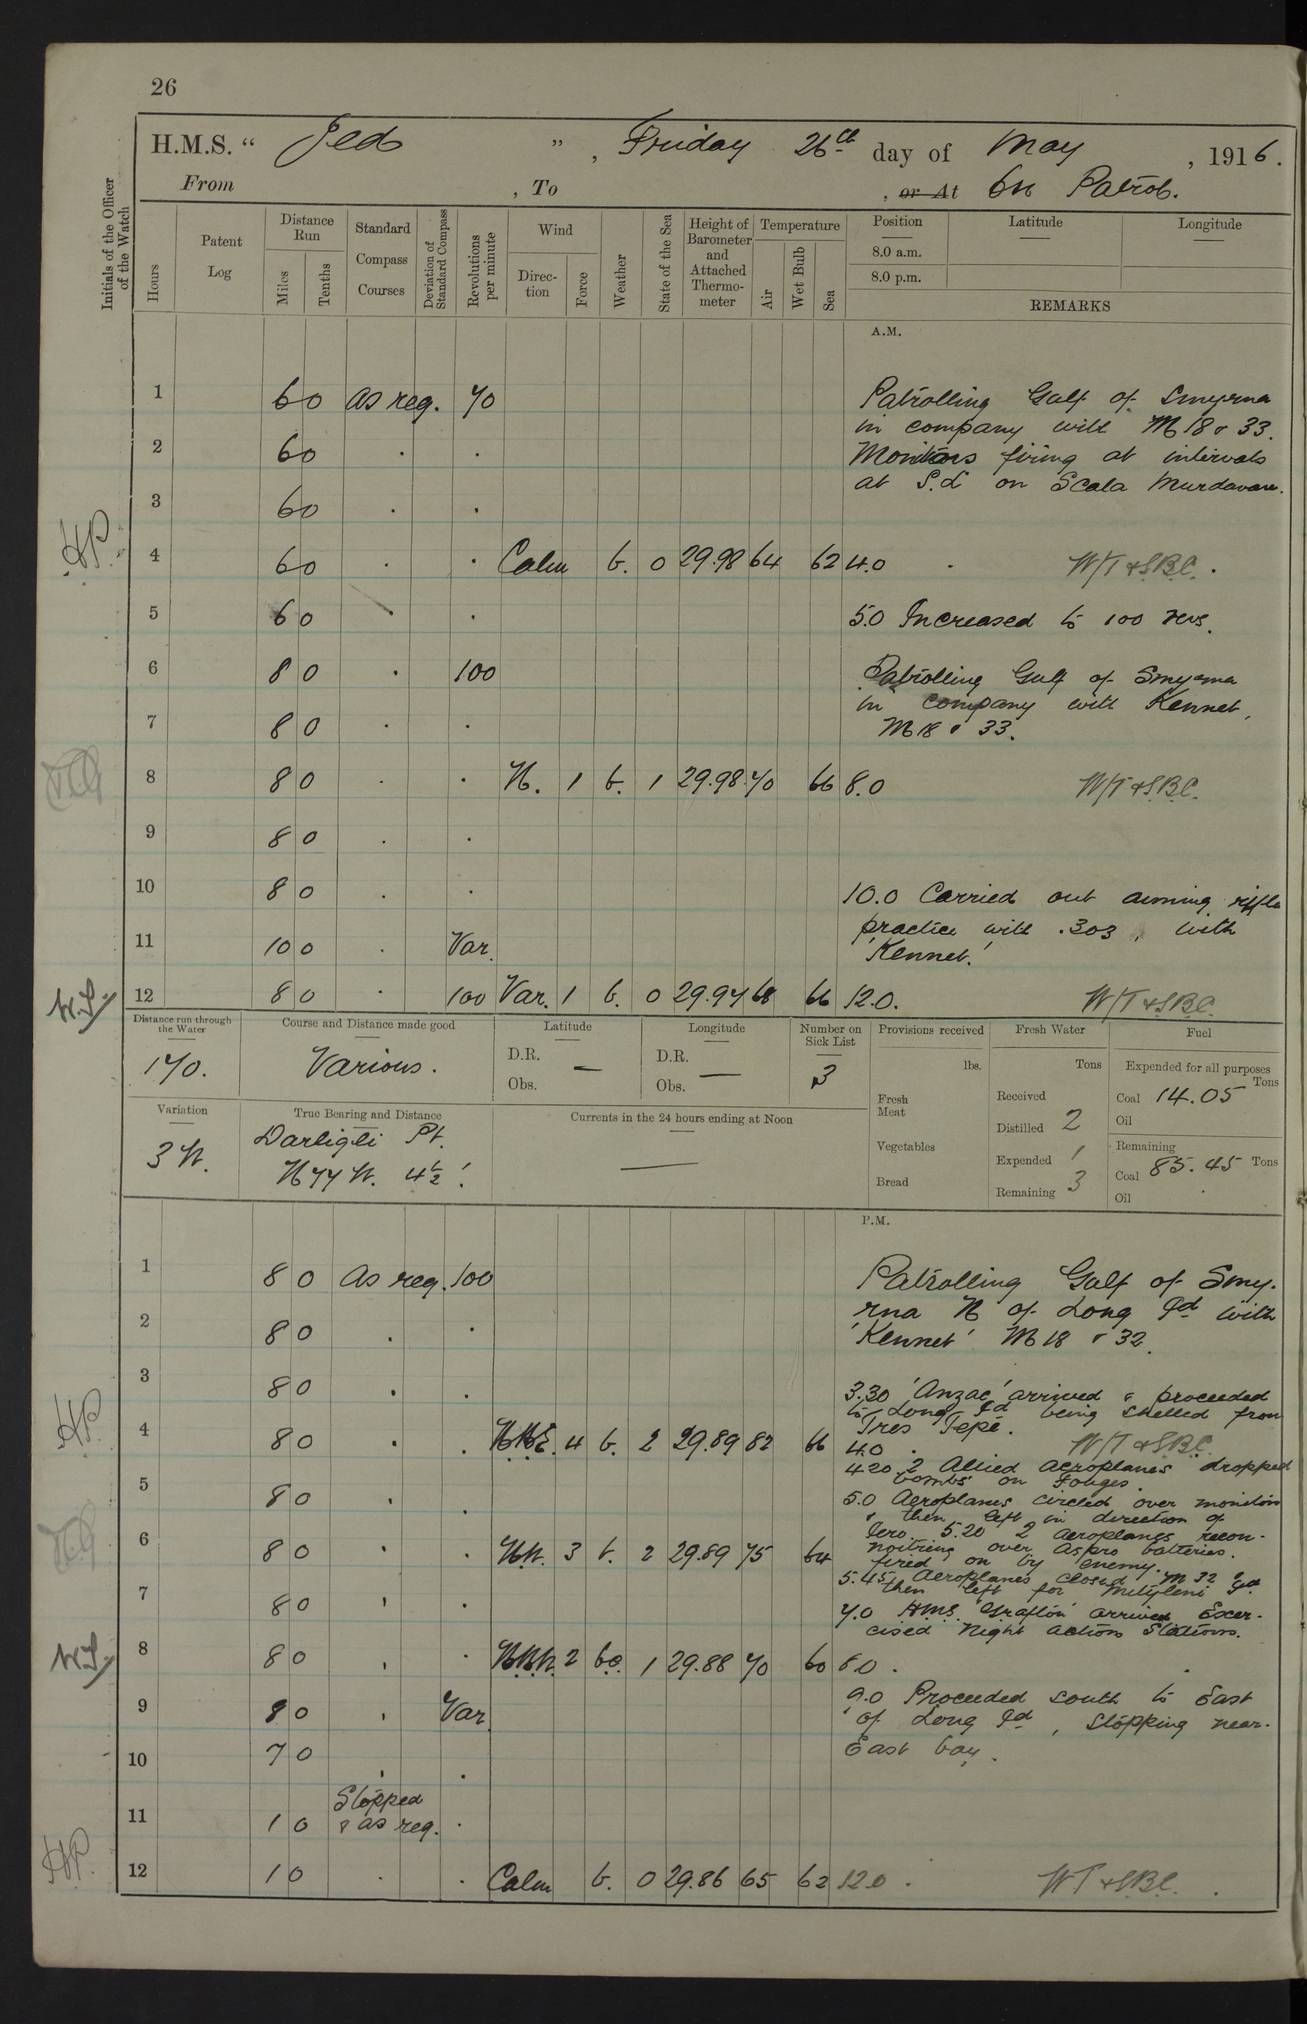 26
H.M.S. “ Jed ” , Friday 26th day of May , 1916.
From , To , or At On Patrol.
Initials of the Officer of the Watch
Hours
Patent Log
Distance Run
Miles
Tenths
Standard Compass Courses
Deviation of Standard Compass
Revolutions per minute
Wind
Direction
Force
Weather
State of the Sea
Height of Barometer and Attached Thermometer
Temperature
Air
Wet Bulb
Sea
Position Latitude Longitude
8.0 a.m.
8.0 p.m.
REMARKS
A.M.
1 6 0 As req. 70 Patrolling Gulf of Smyrna
in company with M 18 & 33.
2 6 0 . . Monitors firing at intervals
at S.L on Scala
3 6 0 . .
H.P. 4 6 0 . . Calm b. 0 29.98 64 62 4.0 . W/T & S.B.C.
5 6 0 . 5.0 Increased to 100 revs.
6 8 0 . 100 Patrolling Gulf of Smyrna
in company with Kennet,
7 8 0 . . M18 & 33.
8 8 0 . . N. 1 b. 1 29.98 70 66 8.0 W/T & S.B.C.
9 8 0 . .
10 8 0 . . 10.0 Carried out aiming rifle
practice with .303, with
11 10 0 . Var. 'Kennet.'
12 8 0 . 100 Var. 1 b. 0 29.94 68 66 12.0. W/T & S.B.C.
Distance run through the Water
170.
Course and Distance made good
Various.
Latitude
D.R.
Obs. —
Longitude
D.R.
Obs. —
Number on Sick List
3
Provisions received
lbs.
Fresh Meat
Vegetables
Bread
Fresh Water
Tons
Received
Distilled 2
Expended 1
Remaining 3
Fuel
Expended for all purposes
Tons
Coal 14.05
Oil
Remaining
Coal 85.45 Tons
Oil
Variation
3 W.
True Bearing and Distance
Darligli Pt.
N 77 W. 4½'
Currents in the 24 hours ending at Noon
—
P.M.
1 8 0 As req. 100 Patrolling Gulf of Smy-
rna N of Long Id with
2 8 0 . . 'Kennet' M 18 & 32.
3 8 0 . . 3.30 'Anzac' arrived & proceeded
to Long Id being shelled from
Tres Tepe.
H.P. 4 8 0 . . N.N.E. 4 b. 2 29.89 82 66 4.0 . W/T & S.B.C.
4.20 2 Allied aeroplanes dropped
bombs on Fouges.
5 8 0 . . 5.0 Aeroplanes circled over monitors
& then left in direction of
Iero. 5.20 2 aeroplanes recon-
6 8 0 . . N.W. 3 b. 2 29.89 75 64 noitring over Aspro batteries.
fired on by enemy.
5.45 Aeroplanes closed M 32 &
then left for Mitylene Id.
7 8 0 . . 7.0 H.M.S. 'Grafton' arrived Exer-
cised Night Action Stations.
8 8 0 . . N.N.W. 2 bc. 1 29.88 70 60 8.0 .
9 8 0 . Var. 9.0 Proceeded south to East
of Long Id, stopping near
10 7 0 . . East bay.
11 1 0 Stopped & as req. .
H.P. 12 1 0 . . Calm b. 0 29.86 65 62 12.0 . W T & S.B.C.